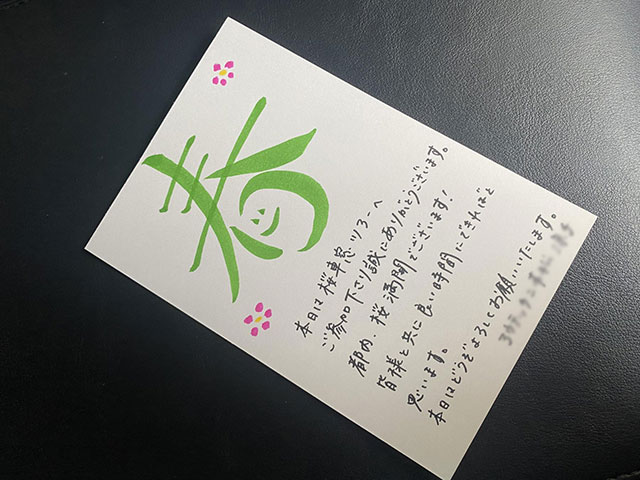 春
本日は桜車窓ツアーへ
ご参加下さり誠にありがとうございます。
都内、桜満開でございます!
皆様と共に良い時間にできればと
思います。
本日はどうぞよろしくお願いいたします。